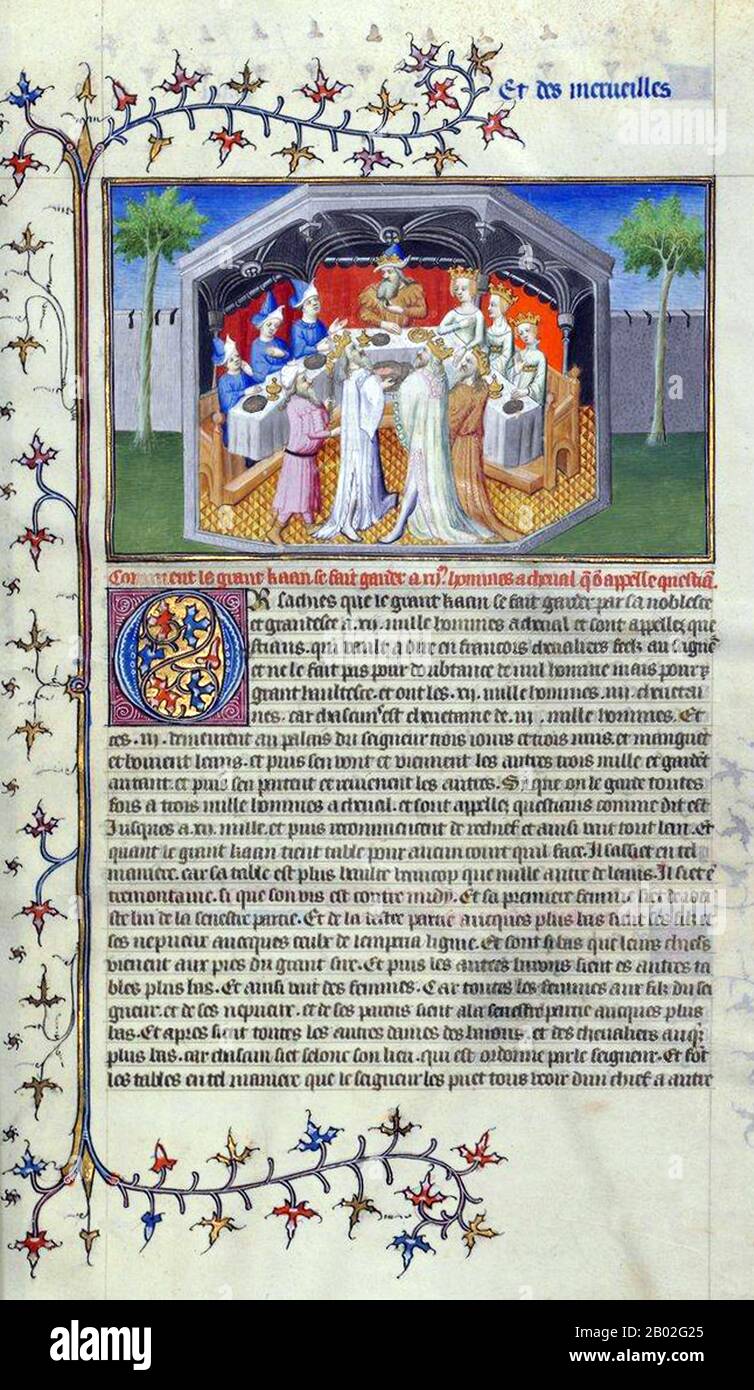 Et des merueilles
Comment le grant kaan se fait garder a xijᵐ. hommes a cheual qͥ ō appelle questiā.
OR sachies que le grant kaan se fait garder par sa noblesce
et grandesce a .xij. mille hommes a cheual et sont appellez que
stians. qui vault a dire en francois cheualiers feelz au seigneᷣ
et ne le fait pas pour doubtance de nul homme mais pour
grant haultesce. et ont les .xij. mille hommes .iiij. cheuetai
nes. car chascun est cheuetaine de .iij. mille hommes. Et
ces .iij. demeurent au palais du seigneur trois iours et trois nuis. et manguēt
et boiuent leans. et puis sen vont et viennent les autres trois mille et gardēt
autant. et puis sen partent et reuienent les autres. Si que on le garde toutes
fois a trois mille hommes a cheual. et sont appellez questians comme dit est
Jusques a .xij. mille. et puis recommencent de rechief et ainsi vait tout lan. Et
quant le grant kaan tient table pour aucun court quil face. Il sassiet en tel
maniere. car sa table est plus haulte beaucop que nulle autre de leans. Il siet ē
tremontaine. si que son vis est contre midy. Et sa premiere femme siet
de la senestre partie. Et de la destre partie auques plus bas sient les filz et
ses nepueux auecques ceulx de lemperial ligne. Et sont si bas que leurs chiefs
vienent aux pies du grant sire. Et puis les autres barons sient es autres ta
bles plus bas. Et ainsi vait des femmes. Car toutes les femmes aux filz du sei
gneur. et de ses nepueux. et de ses parens sient a la senestre partie auques plus
bas. Et apres sient toutes les autres dames des barons. et des cheualiers auqͥs
plus bas. car chascun siet selonc son lieu. qui est ordonne par le seigneur. Et sōt
les tables en tel maniere que le seigneur les puet tous veoir dun chief a autre
alamy
Image ID: 2B02G25
www.alamy.com